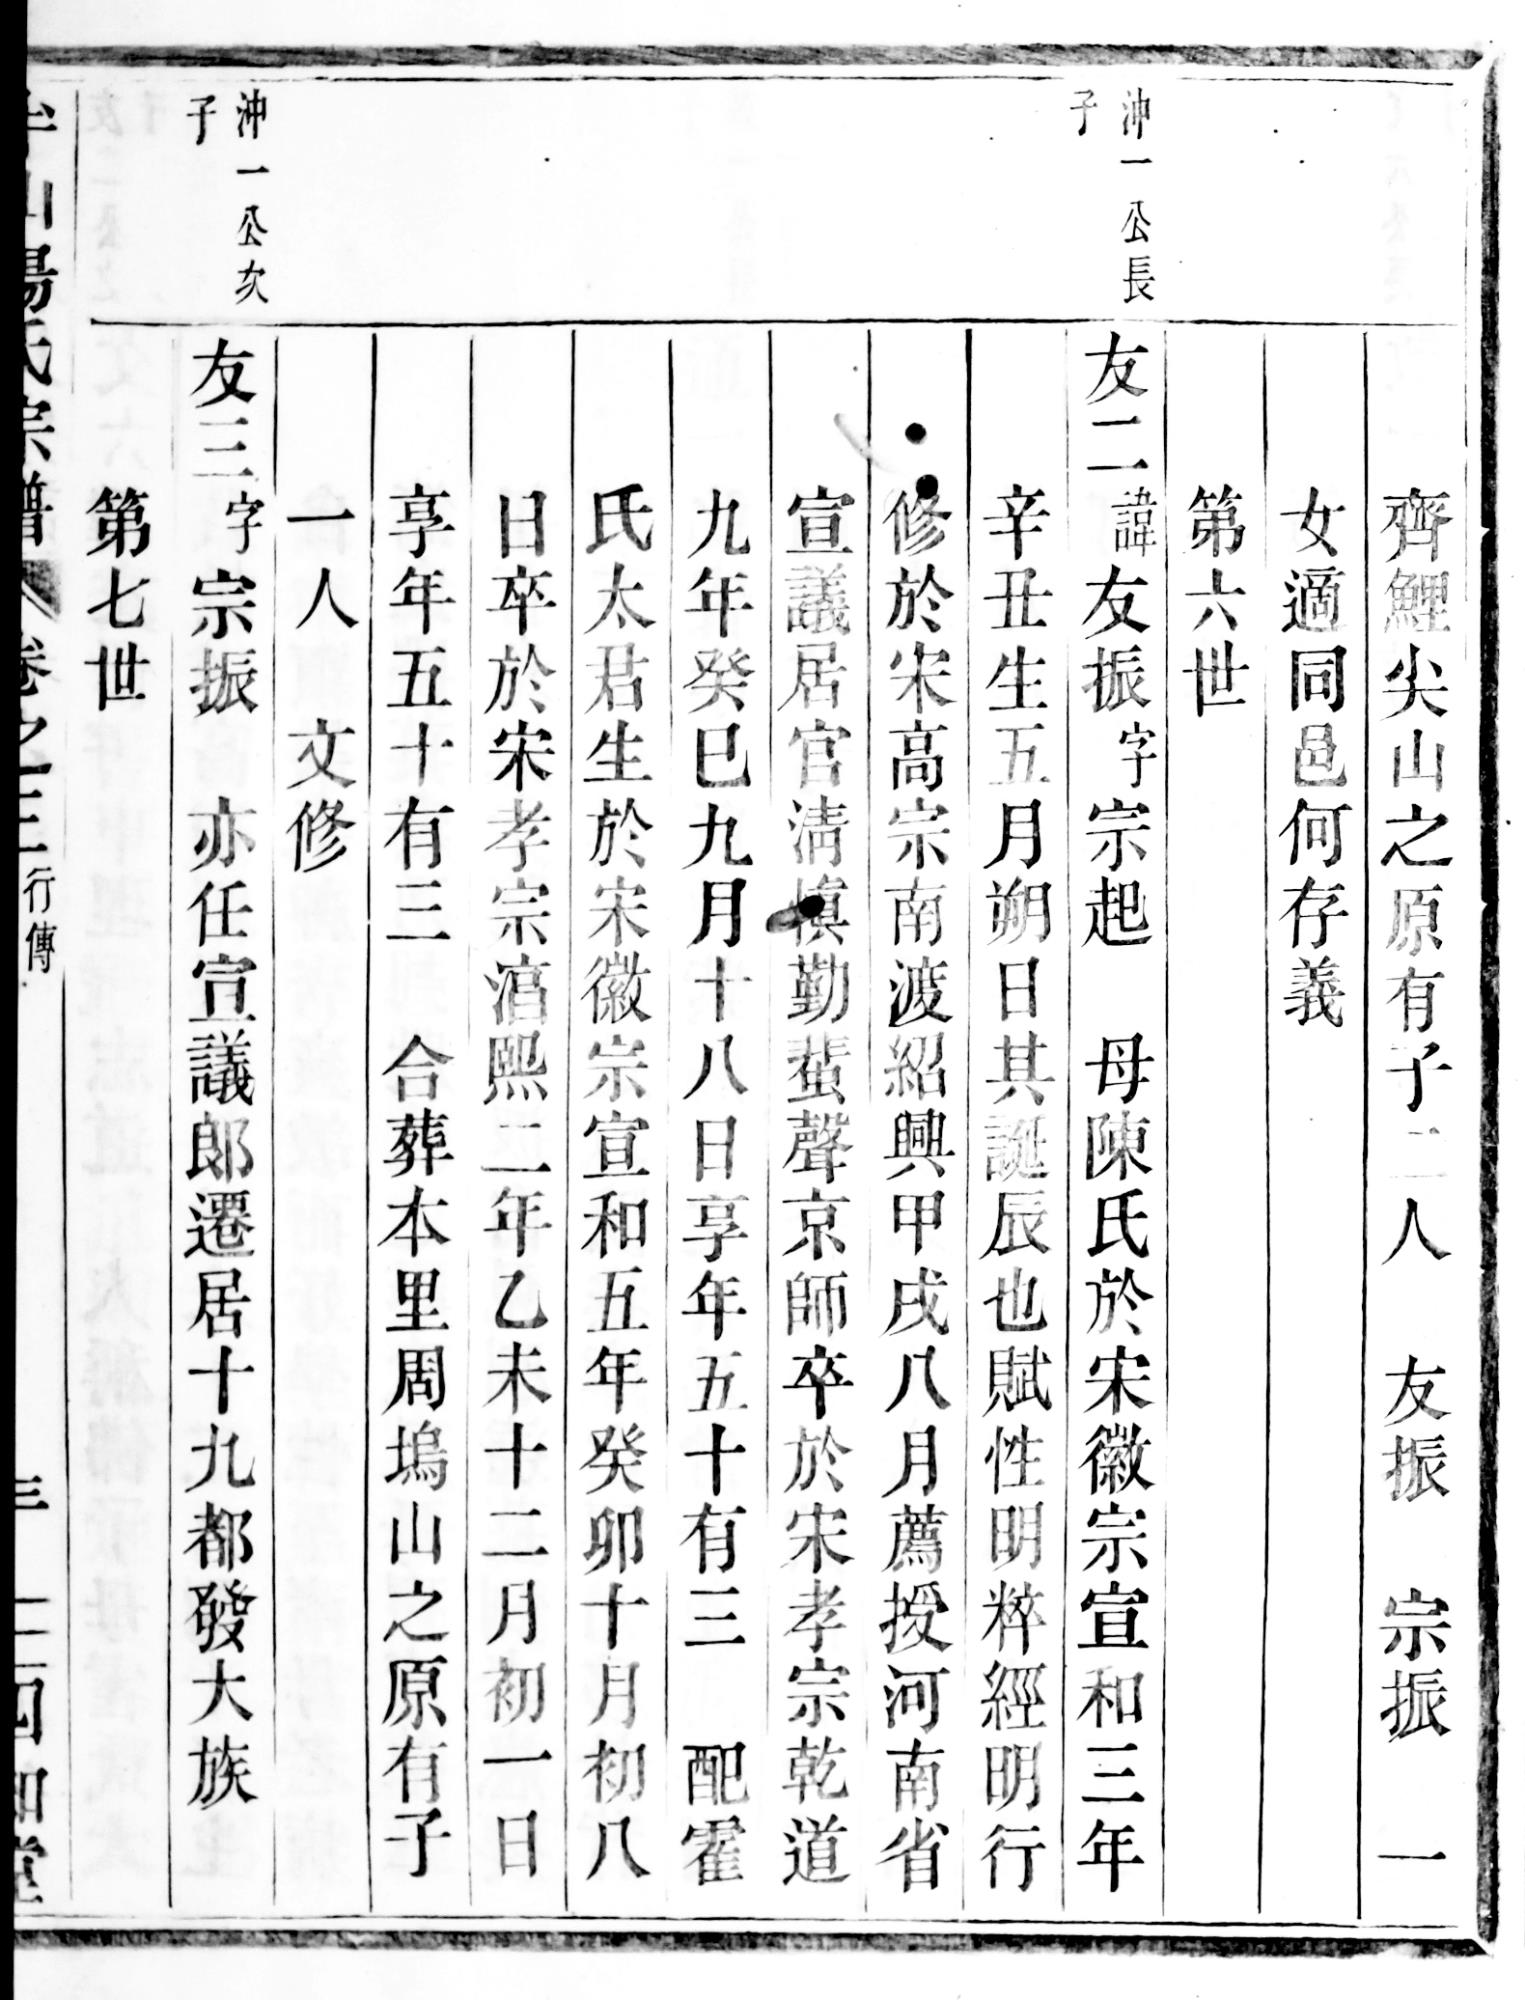 齊鯉尖山之原有子二人 友振 宗振 一
女適同邑何存義
第六世
沖一公長
子
友二 諱友振 字宗起 母陳氏於宋徽宗宣和三年
辛丑生五月朔日其誕辰也賦性明粹經明行
修於宋高宗南渡紹興甲戌八月薦授河南省
宣議居官淸慎勤蜚聲京師卒於宋孝宗乾道
九年癸巳九月十八日享年五十有三 配霍
氏太君生於宋徽宗宣和五年癸卯十月初八
日卒於宋孝宗湻熙二年乙未十二月初一日
享年五十有三 合葬本里周塢山之原有子
一人 文修
沖一公次
子
友三 字宗振 亦任宣議郎遷居十九都發大族
第七世
山楊氏宗譜 卷之三 行傳 四知堂